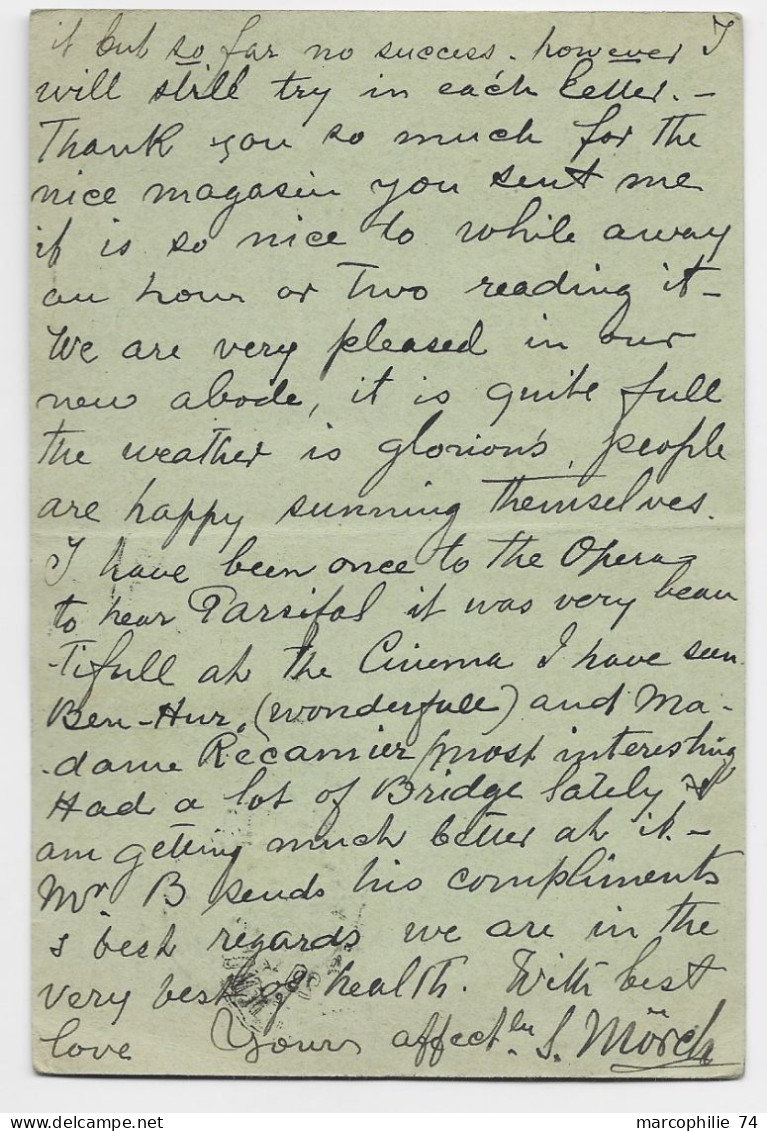 it but so far no success. however I
will still try in each letter. -
Thank you so much for the
nice magasin you sent me
it is so nice to while away
an hour or two reading it -
We are very pleased in our
new abode, it is quite full
the weather is glorious, people
are happy sunning themselves.
I have been once to the Opera
to hear Parsifal it was very beau
-tifull at the Cinema I have seen
Ben-Hur, (wonderfull) and Ma-
-dame Récamier (most interesting
Had a lot of Bridge lately, &
am getting much better at it. -
Mr B sends his compliments
& best regards we are in the
very best of health. With best
love Yours affectly. S. Mörch
marcophilie 74